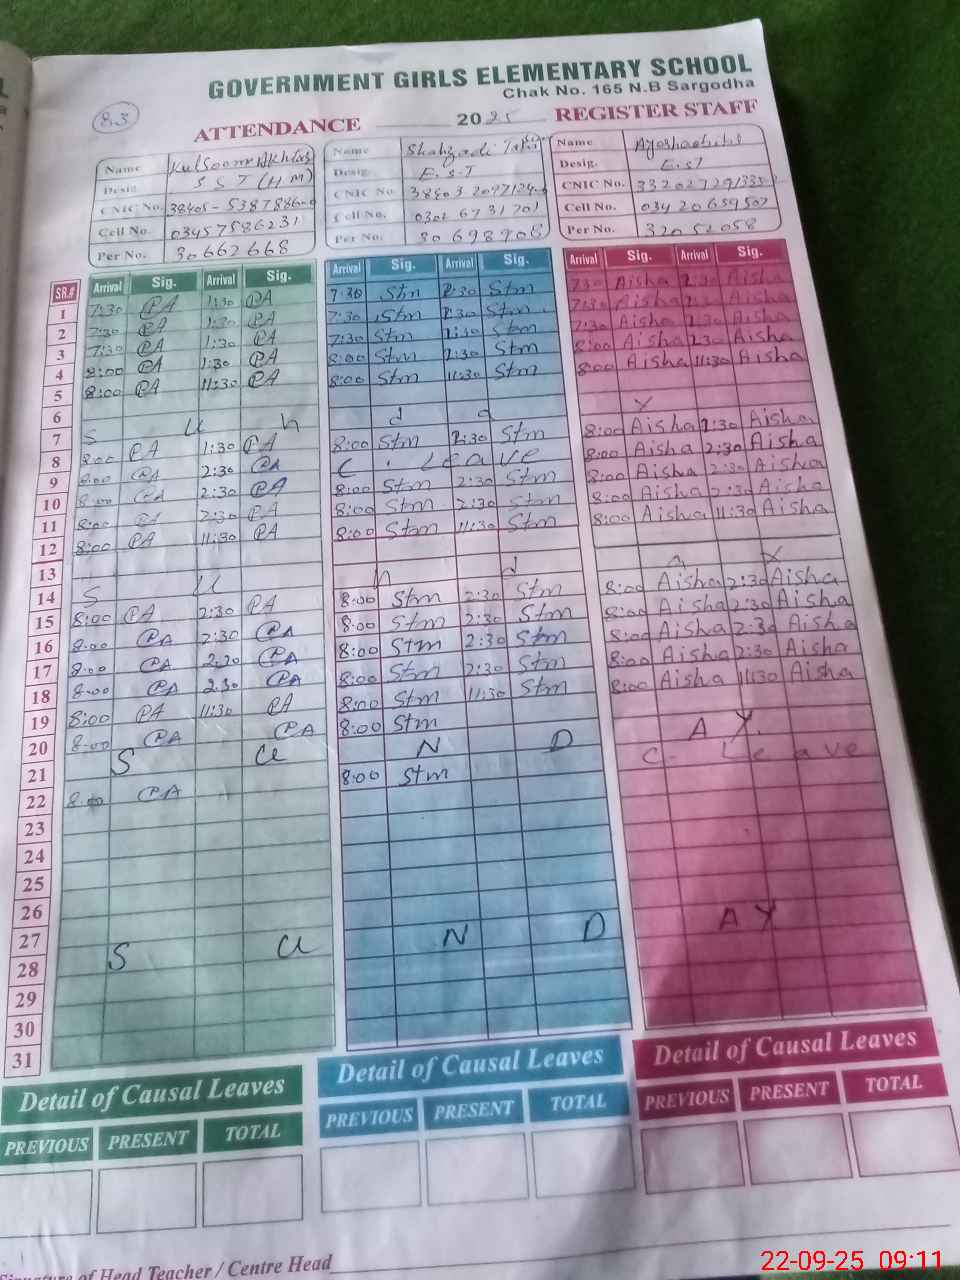 GOVERNMENT GIRLS ELEMENTARY SCHOOL
Chak No. 165 N.B Sargodha
8.3
ATTENDANCE 2025 REGISTER STAFF
Name Kulsoom Akhtar
Desig. S.S.T (H M)
CNIC No.
Cell No. 03457586231
Per No. 30662668
Name Shahzadi
Desig. E.S.T
CNIC No
Cell No. 0302 6731701
Per No. 30698908
Name
Desig. E.ST
CNIC No.
Cell No. 03420659507
Per No. 32052058
SR.# Arrival Sig. Arrival Sig. Arrival Sig. Arrival Sig. Arrival Sig. Arrival Sig.
1 7:30 PA 1:30 PA 7:30 Stm 2:30 Stm 7:30 Aisha 2:30 Aisha
2 7:30 PA 1:30 PA 7:30 Stm 2:30 Stm 7:30 Aisha Aisha
3 7:30 PA 1:30 PA 7:30 Stm 2:30 Stm 7:30 Aisha 2:30 Aisha
4 8:00 PA 1:30 PA 8:00 Stm 2:30 Stm 8:00 Aisha 2:30 Aisha
5 8:00 PA 11:30 PA 8:00 Stm 11:30 Stm 8:00 Aisha 11:30 Aisha
6
7 S u n d a y
8 8:00 PA 1:30 PA 8:00 Stm 2:30 Stm 8:00 Aisha 2:30 Aisha
9 8:00 PA 2:30 PA C. Leave 8:00 Aisha 2:30 Aisha
10 8:00 PA 2:30 PA 8:00 Stm 2:30 Stm 8:00 Aisha 2:30 Aisha
11 8:00 PA 2:30 PA 8:00 Stm 2:30 Stm 8:00 Aisha 2:30 Aisha
12 8:00 PA 11:30 PA 8:00 Stm 11:30 Stm 8:00 Aisha 11:30 Aisha
13
14 S u n d a y
15 8:00 PA 2:30 PA 8:00 Stm 2:30 Stm 8:00 Aisha 2:30 Aisha
16 8:00 PA 2:30 PA 8:00 Stm 2:30 Stm 8:00 Aisha 2:30 Aisha
17 8:00 PA 2:30 PA 8:00 Stm 2:30 Stm 8:00 Aisha 2:30 Aisha
18 8:00 PA 2:30 PA 8:00 Stm 2:30 Stm 8:00 Aisha 2:30 Aisha
19 8:00 PA 11:30 PA 8:00 Stm 11:30 Stm 8:00 Aisha 11:30 Aisha
20 8:00 PA PA 8:00 Stm
21 S U N D A Y
22 8:00 PA 8:00 Stm C. Leave
23
24
25
26
27
28 S U N D A Y
29
30
31
Detail of Causal Leaves Detail of Causal Leaves Detail of Causal Leaves
PREVIOUS PRESENT TOTAL PREVIOUS PRESENT TOTAL PREVIOUS PRESENT TOTAL
Signature of Head Teacher / Centre Head
22-09-25 09:11